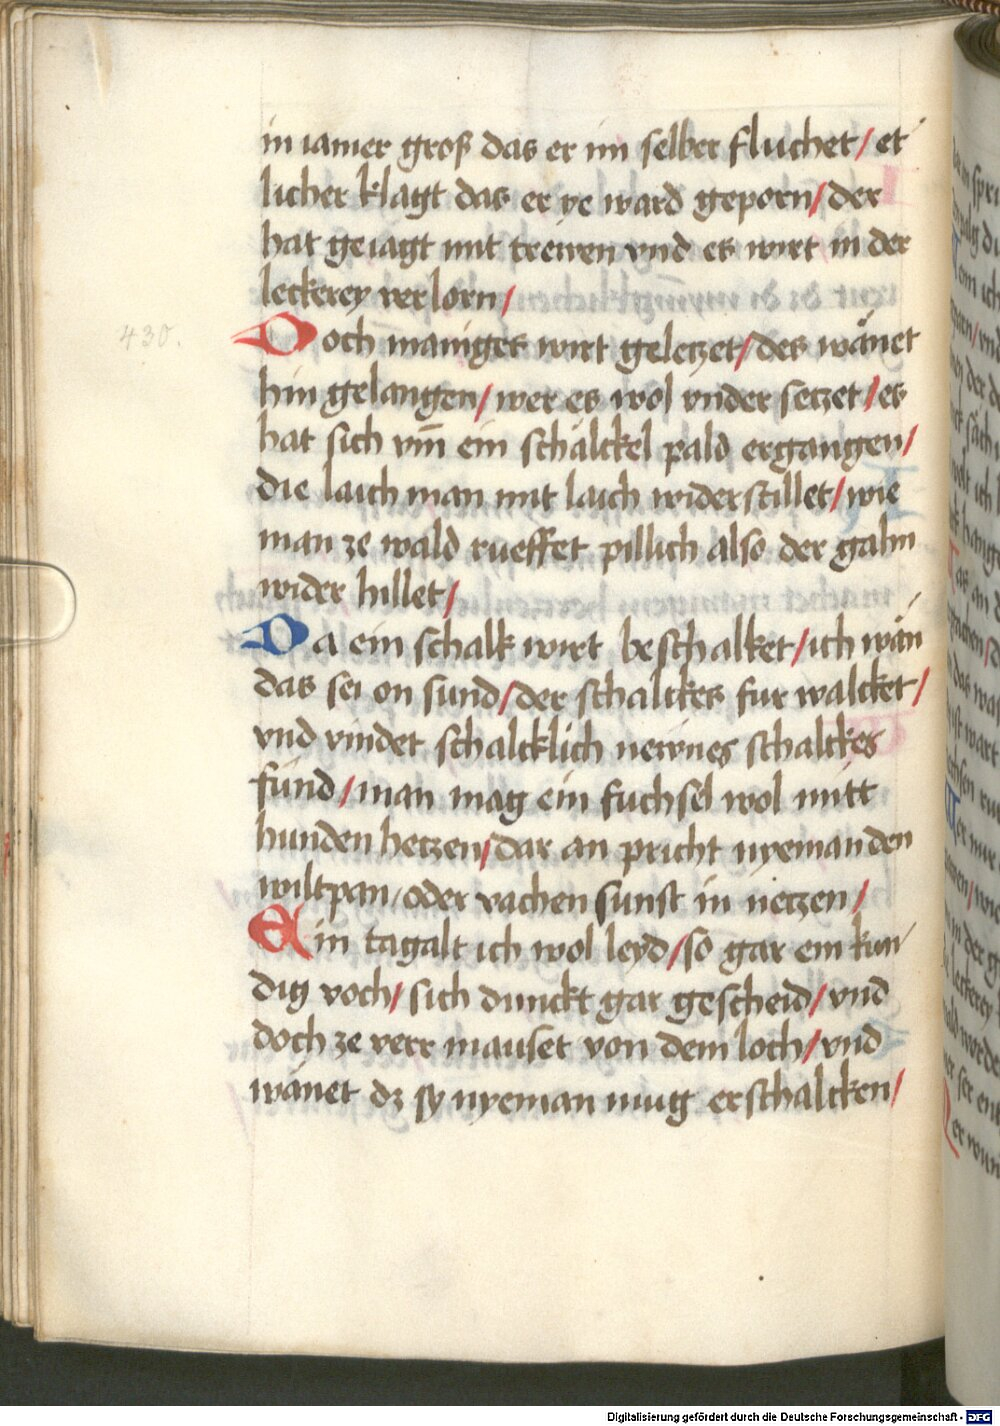 in iamer groß das er im selber fluchet / et
licher klagt das er ye ward geporn / der
hat geiagt mit trewen vnd es wirt in der
leckerey verlorn /
430.
Doch maniges wirt geletzet / des wänet
hin gelangen / wer es wol vnder setzet / es
hat sich vm̄ ein schälckel pald ergangen /
die laich man mit laich widerstillet / wie
man ze wald rueffet pillich also der galm
wider hillet /
Da ein schalk wirt beschalket / ich wän
das sei on sund / der schalckes fur walcket /
vnd vindet schalcklich newnes schalckes
fund / man mag ein fuchsel wol mitt
hunden hetzen / dar an pricht nyeman den
wiltpan / oder vachen sunst in netzen /
Ein tagalt ich wol leyd / so gar ein kun
dig voch / sich dunckt gar gescheid / vnd
doch ze verr mauset von dem loch / vnd
wänet dz sy nyeman mug erschalcken /
Digitalisierung gefördert durch die Deutsche Forschungsgemeinschaft - DFG